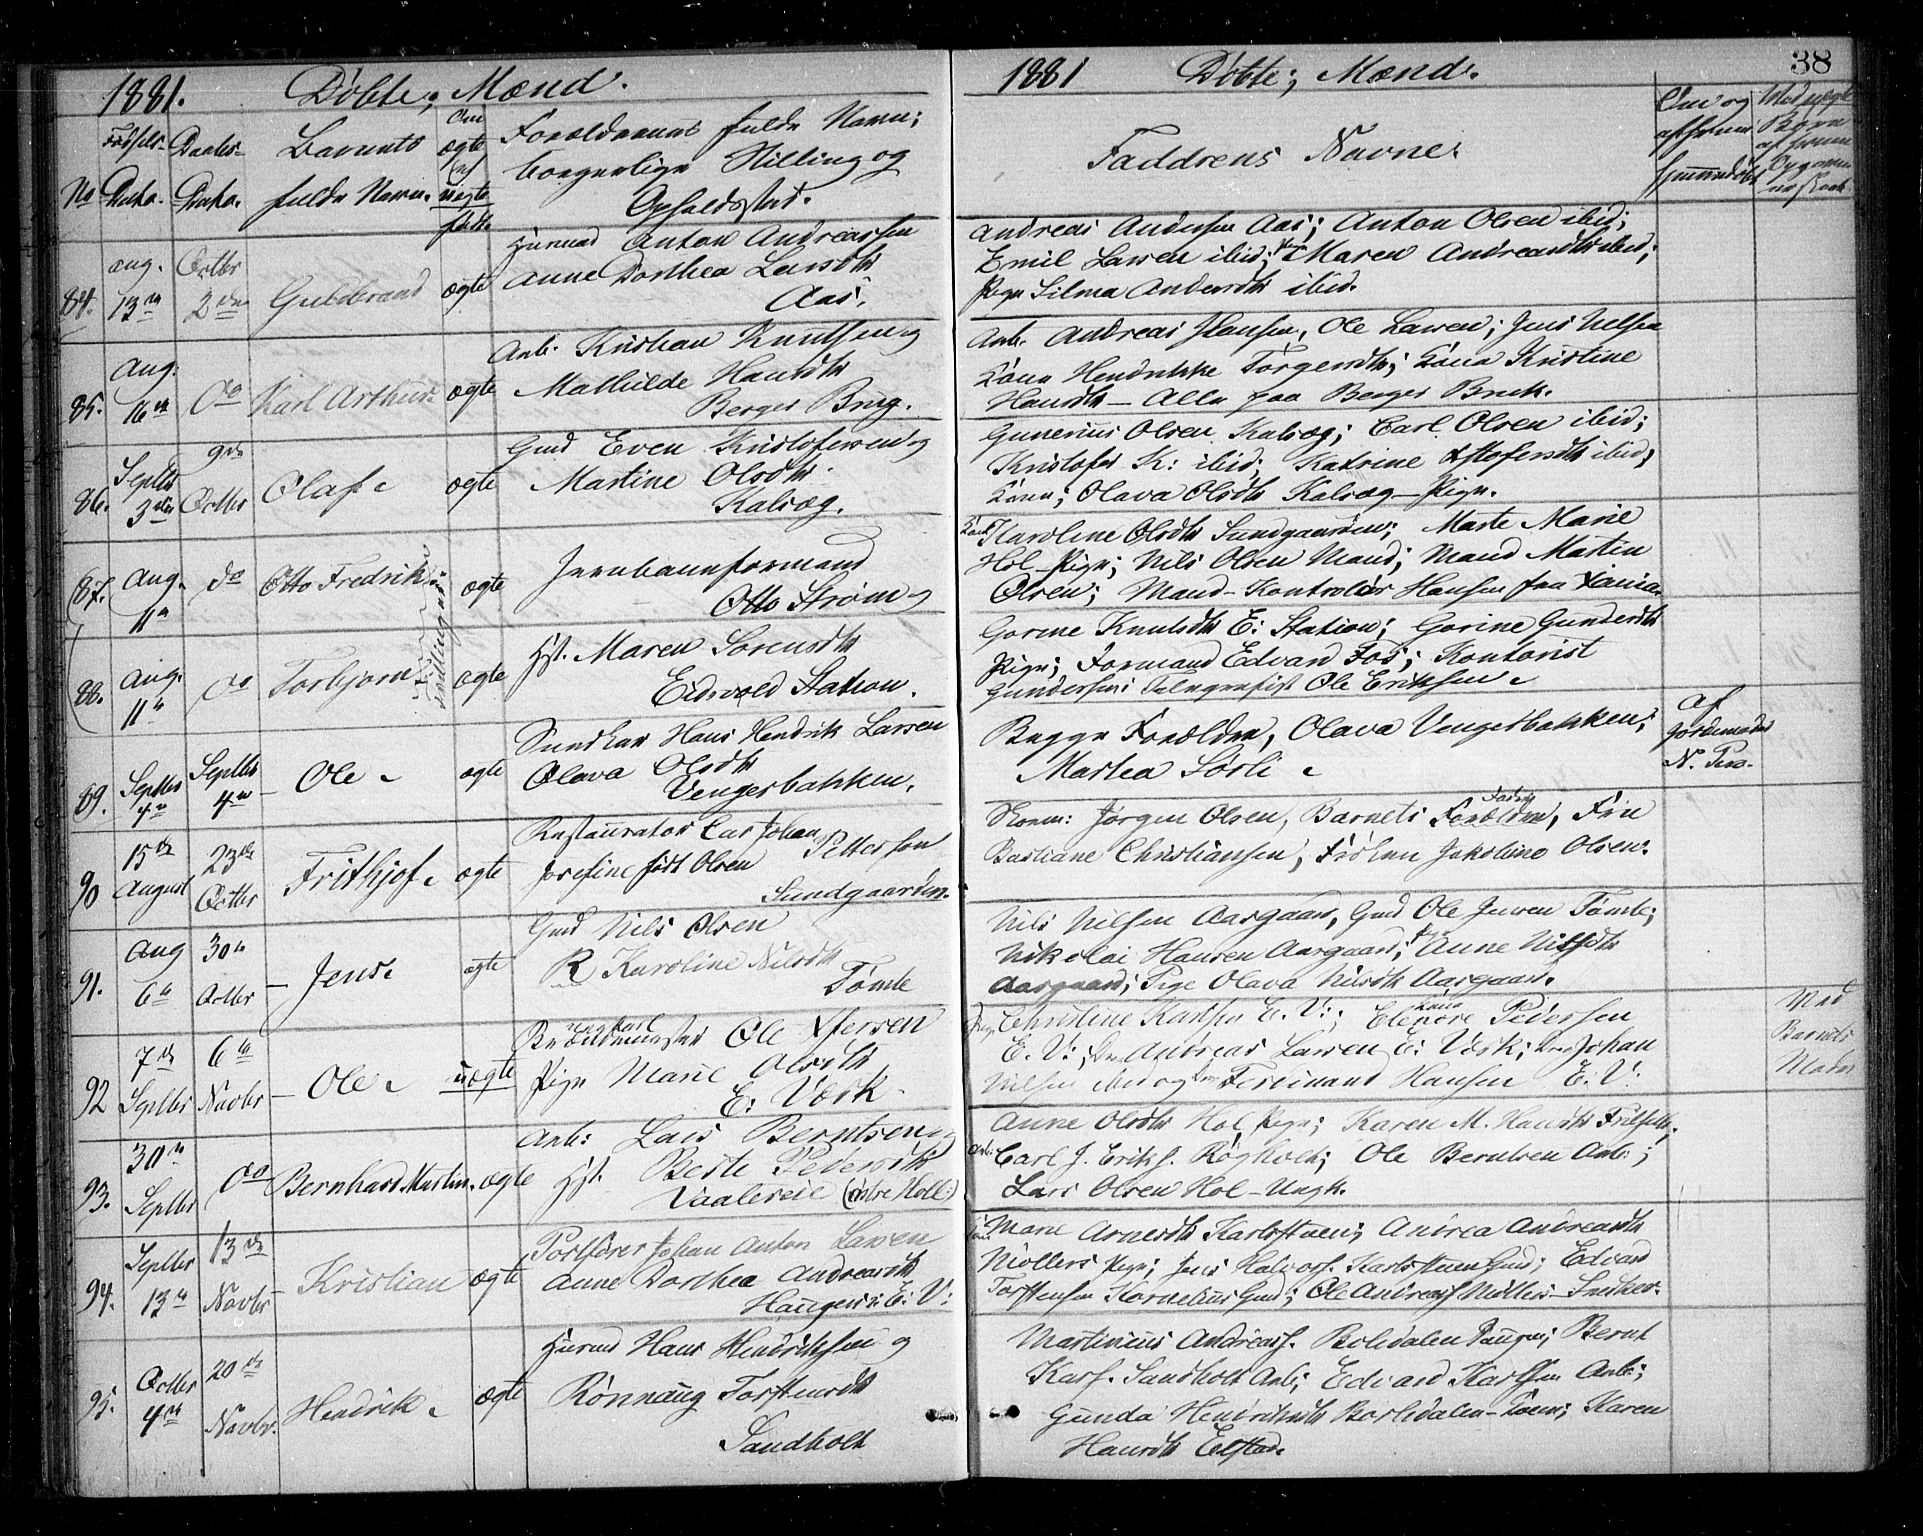 1881. Døbte, Mænd.
No Daaks- Barnets fulde Navn. ægte uægte
Forældrenes fulde Navn; borgerlige Stilling og
Opholdssted.
84. Aug. 13de Octbr 2den Guldbrand ægte
Husmd Anton Andreassen
Anne Dorthea Larsdtr
Aas.
85. Aug. 16de do Karl Arthur ægte
Arb. Kristian Knutsen og
Mathilde Hansdtr
Berger Brug.
86. Septbr 3die 9de Octbr Olaf ægte
Gmd Even Kristofersen og
Martine Olsdtr
Kalsæg.
87. Aug. 11te do Otto Fredrik ægte
Tvillinger
Jernbaneformand
Otto Strøm og
88. Aug. 11te do Torbjørn ægte
Hst. Maren Sørensdtr
Eidsvold Station.
89. Septbr 4de Septbr 4de Ole ægte
Hans Hendrik Larsen
Olava Olsdtr
Vengerbakken.
90 15de August 23de Octbr Frithjof ægte
Restauratør Carl Johan Pettersson
Josefine født Olsen
Sundgaarden.
91. Aug 6te 30te Octbr Jens ægte
Gmd Nils Olsen
K Karoline Nilsdtr
Tømte
92 7de Septbr 6te Novbr Ole uægte
Ungkarl
Ole Ifversen
Pige Marie Olsdtr
E. Værk
93. 30te Septbr do Bernhard Martin ægte
Arb: Lars Berntsen og
Hst. Berte Pedersdtr
Vaalereie (østre Holl)
94. Septbr 13de 13de Novbr Kristian ægte
Johan Anton Larsen
Anne Dorthea Andreasdtr
Haugen E. V.
95. Octbr 4de 20de Novbr. Hendrik ægte
Husmd Hans Hendriksen og
Rønnaug Torstensdtr
Sandholt
1881 Døbte, Mænd. 38
Faddrenes Navne.
Om og af hvem hjemmedøbt
Andreas Andersen Aas; Anton Olsen ibid;
Emil Larsen ibid; Maren Andreasdtr ibid;
Pige Silma Andersdtr ibid.
Arb. Andreas Hansen, Ole Larsen; Jens Nilsen
Kona Hendrikke Torgersdtr; Kona Kristine
Hansdtr – Alle paa Berger Bruk.
Gunerius Olsen Kalsæg; Carl Olsen ibid;
Kristofer K: ibid; Katrine ibid,
Kone; Olava Olsdtr Kalsæg – Pige.
Karoline Olsdtr Sundgaarden; Marte Marie
Hol – Pige; Nils Olsen Mand; Mand Martin
Olsen; Mand – Kontrolør Hansen
Gorine Knutsdtr E: Station; Gorine Gundersdtr
Pige; Formand Edvard Fos; Kontorist
Gundersen; Telegrafist Ole Eriksen
Begge Forældre, Olava Vengerbakken;
Martea Sørli
Af Jordemoder N. Pers.
Jørgen Olsen, Barnets Fader, Fru
Bastiane Christiansen, Frøken Jakobine Olsen.
Nils Nilsen Aasgaard, Gmd Ole Jensen Tømte;
Nikolai Hansen Aasgaard; Anne Nilsdtr
Aasgaard; Pige Olava Nilsdtr Aasgaard.
Pige Christine Karlsen E. V.; Kona Elenore Pedersen
E. V.; Andreas Larsen E: Værk; Johan
Nilsen ibid og Ferdinand Hansen E. V.
Med Barnets Moder
Anne Olsdtr Hol Pige; Karen M. Hansdtr
Carl J. Eriks. Røgholt; Ole Berntsen Arb.;
Lars Olsen Hol – Ungk.
Marie Arnesdtr Karlstuen; Andrea Andreasdtr
Møllers Pige; Jens Halvors. Karlstuen Gmd; Edvard
Torstensen Kornelius Gmd; Ole Andreas Møller – Snedker.
Martinius Andreass. Bolsdalen; Bernt
Karls. Sandholt Arb; Edvard Karlsen Arb;
Gunda Hendriksdtr – Kone; Karen
Hansdtr Elstad.